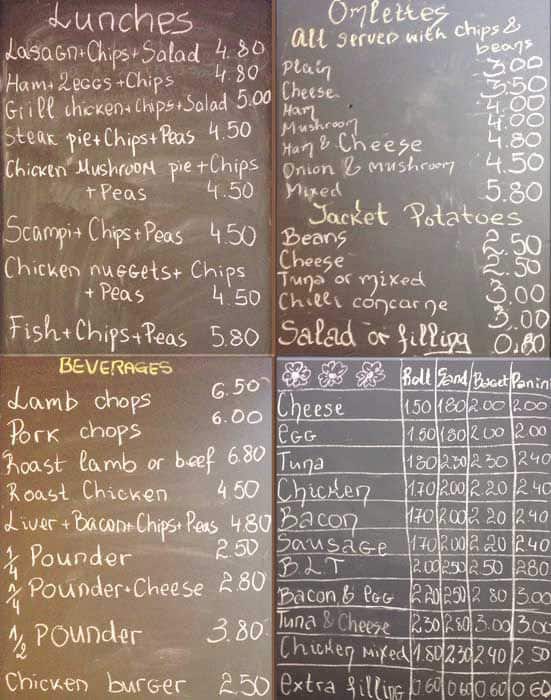 Lunches
Lasagn+Chips+Salad 4.80
Ham+2eggs+Chips 4.80
Grill chicken+chips+Salad 5.00
Steak pie+Chips+Peas 4.50
Chicken Mushroom pie+Chips
+Peas 4.50
Scampi+Chips+Peas 4.50
Chicken nuggets+Chips
+Peas 4.50
Fish+Chips+Peas 5.80
Omlettes
All served with chips &
beans
Plain 3.00
Cheese 3.50
Ham 4.00
Mushroom 4.00
Ham & Cheese 4.80
Onion & mushroom 4.50
Mixed 5.80
Jacket Potatoes
Beans 2.50
Cheese 2.50
Tuna or mixed 3.00
Chilli concarne 3.00
Salad or filling 0.80
BEVERAGES
Lamb chops 6.50
Pork chops 6.00
Roast lamb or beef 6.80
Roast Chicken 4.50
Liver+Bacon+Chips+Peas 4.80
1/4 Pounder 2.50
1/4 Pounder+Cheese 2.80
1/2 Pounder 3.80
Chicken burger 2.50
Roll Sand Baget Panini
Cheese 1.50 1.80 2.00 2.00
Egg 1.50 1.80 2.00 2.00
Tuna 1.80 2.30 2.30 2.40
Chicken 1.70 2.00 2.20 2.40
Bacon 1.70 2.00 2.20 2.40
Sausage 1.70 2.00 2.20 2.40
B.L.T 2.00 2.50 2.50 2.80
Bacon & Egg 2.20 2.50 2.80 3.00
Tuna & Cheese 2.30 2.80 3.00 3.00
Chicken mixed 1.80 2.30 2.40 2.50
extra filling 0.60 0.60 0.60 0.60